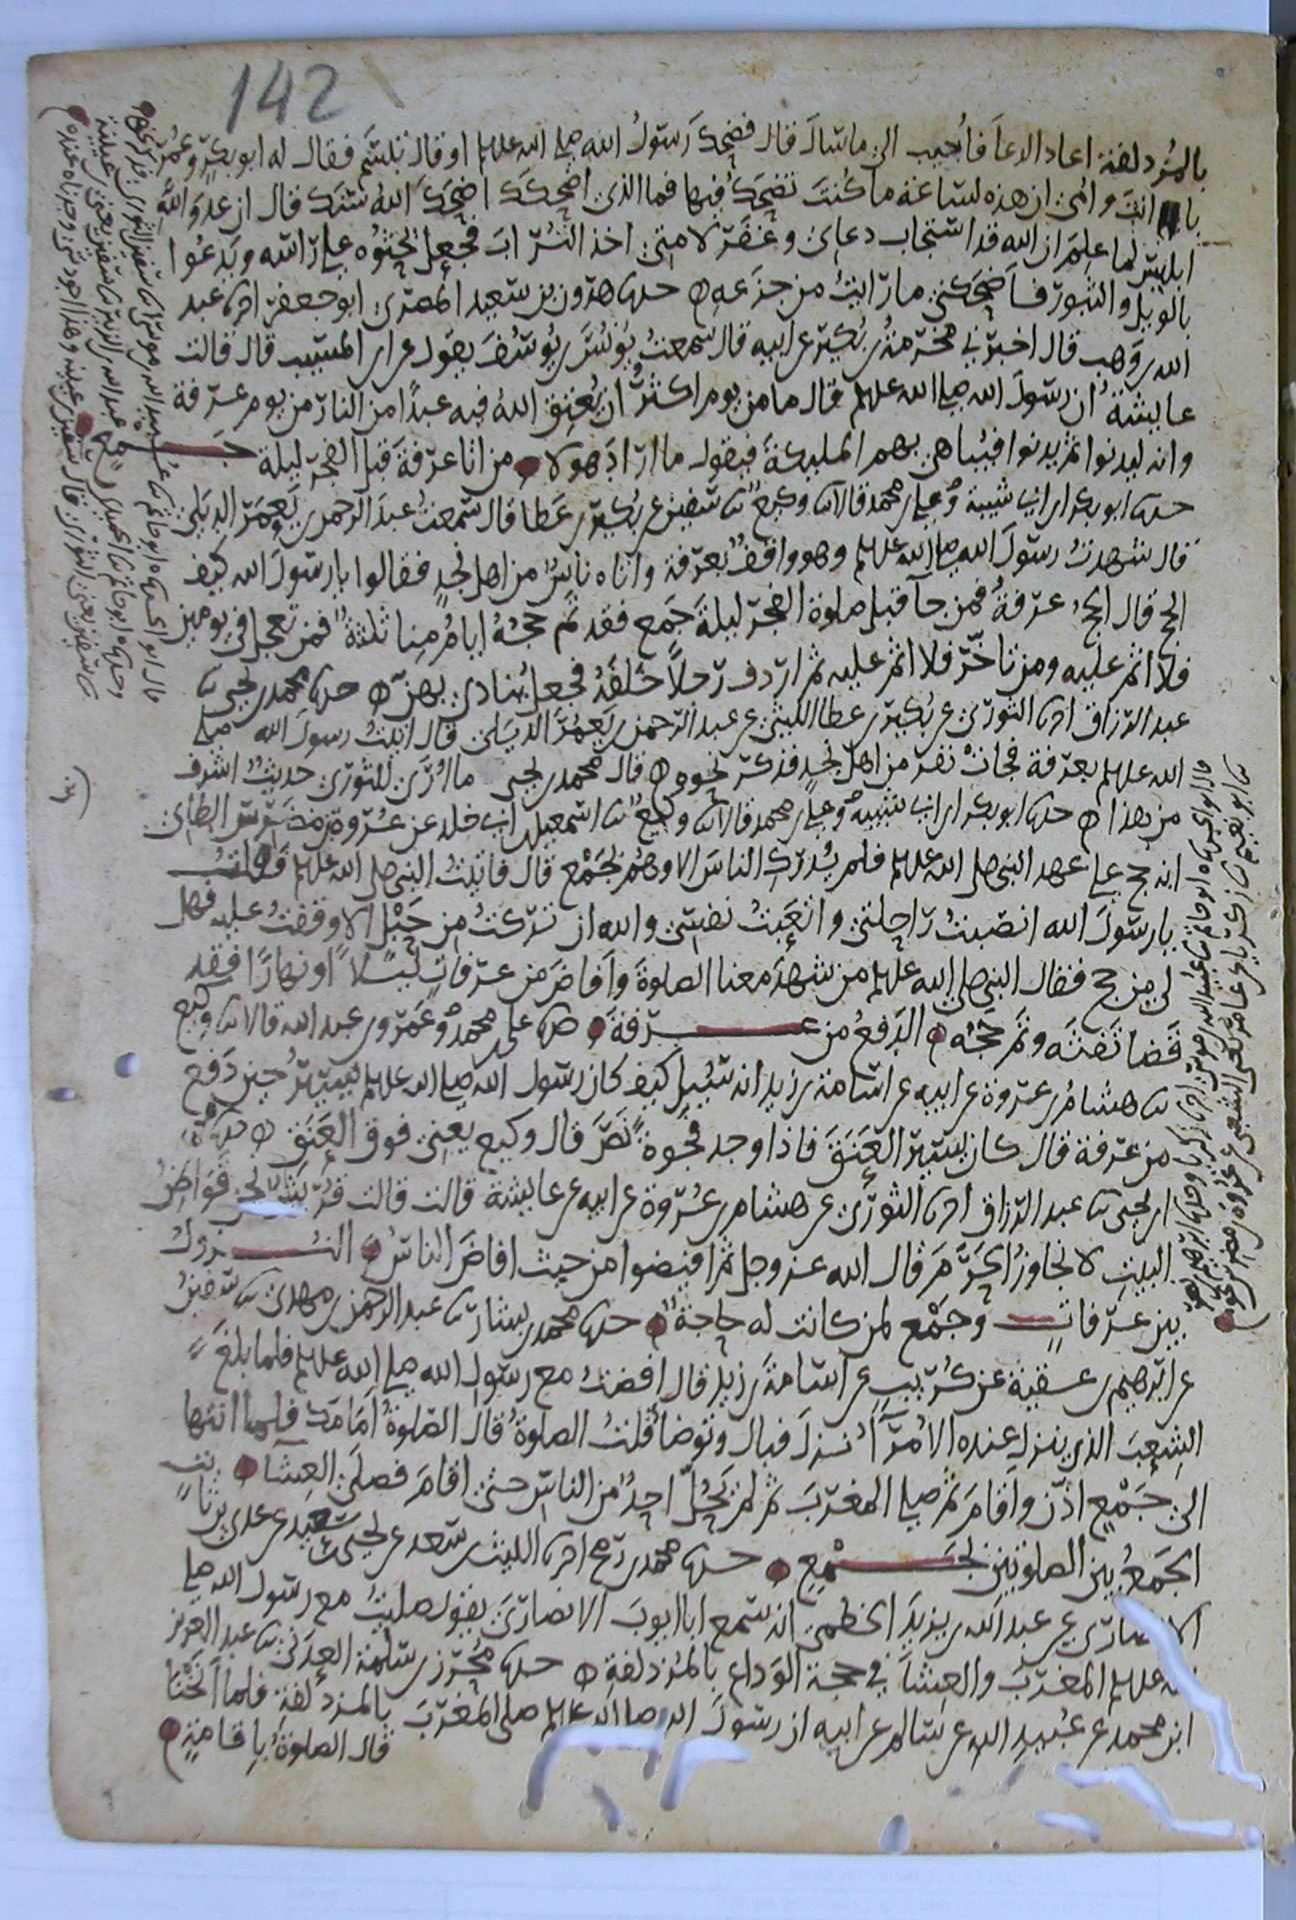 142
بالمُزدلفة اعاد الدعا فأُجيب الى ما سَال قال فضحِكَ رَسولُ الله صلى الله عليه او قال تبسَّم فقال له ابو بكرٍ وعُمَرُ
با انتَ وامي ان هذه لساعة ما كُنتَ تضحَكُ فيها فما الذي اضحكك اضحَكَ اللهُ سنَّك قال ان عدوَ اللهِ
ابليسَ لما علِمَ ان الله قد استجاب دعاي وغفَر لامتي اخذ التُرابَ فجعل يَحثوُه على راسه ويَدعُوا
بالويل والثبور فاضحكني ما رايتُ من جزَعِه حدثنا هرون بن سعيد المصرى ابو جعفر اخبرنا عبد
الله بن وَهب قال اخبرني مخرمةُ بن بُكيرٍ عن ابيه قال سمعتُ يُونُسَ بن يُوسُفَ يقول عن ابن المسيب قال قالت
عايشةُ ان رسولَ الله صلى الله عليه قال ما من يوم اكثرُ ان يُعتِقَ اللهُ فيه عبدًا من النار من يوم عرفة
وانه ليدنوا ثم يدنوا فيُباهي بهم المليكةَ فيقول ما اراد هولا من اتا عرفةَ قبل الفجر ليلة جـمع
حدثنا ابو بكر بن ابي شيبة وعلي بن محمد قالا ثنا وكيع ثنا سفين عن بُكيرِ بن عَطا قال سَمعتُ عبدَ الرحمن بن يَعمَرَ الديَلي
قال شهدتُ رسولَ الله صلى الله عليه وهو واقفٌ بعرفة واتاه ناسٌ من اهل نجدٍ فقالوا يا رسولَ الله كيف
الحج قال الحجُ عرفةُ فمن جا قبل صلوة الفجر ليلةَ جَمع فقد تم حجهُ ايامُ مِنا ثلثةٌ فمن تعجل في يومين
فلا اثم عليه ومن تاخَّر فلا اثم عليه ثم اردف رجلاً خَلفَهُ فجعل يُنادي بهنَّ حدثنا محمد بن يحيى ثنا
عبد الرزاق اخبرنا الثوري عن بُكير بن عطا الليثي عن عبد الرحمن بن يَعمُرَ الديَلي قال اتيتُ رسولَ الله صلى
الله عليه بعرفة فجاتْ نفر من اهل نجد فذكر نحوه قال محمد بن يحيى ما اُرَى للثوري حديثٌ اشرف
من هذا حدثنا ابو بكر بن ابي شيبه وعلي بن محمد قالا ثنا وكيع ثنا اسمعيل بن ابي خلد عن عُروةَ بن مضَرِّس الطاي
انه حج على عهد النبي صلى الله عليه فلم يُدرِك الناسَ الا وهُم بجَمْع قال فاتيتُ النبي صلى الله عليه فقلتُ
يا رسولَ الله انصَبتُ راحِلتي واتعَبتُ نفسي والله ان تركتُ من حَبْلٍ الا وقفتُ عليه فهل
لي من حج فقال النبي صلى الله عليه من شهِدَ معنا الصلوةَ وافاضَ من عرفاتٍ ليلاً او نهارًا فقد
قَضا تَفَثَه وتم حجُه الدَفعُ من عــرفةَ حدثنا علي بن محمدٍ وعَمرو بن عبد الله قالا ثنا وكيع
ثنا هشامُ بن عروة عن ابيه عن اسامة بن زيد انه سُيل كيف كان رسول الله صلى الله عليه يَسِيرُ حين دَفع
من عرفة قال كان يَسيرُ العَنَقَ فاذا وجد فجوةً نصَّ قال وكيع يعني فوق العَنَق حدثنا محمد
بن يحيى ثنا عبد الرزاق اخبرنا الثوري عن هشام بن عُروة عن ابيه عن عايشة قالت قالت قُريشٌ نحن قواطنُ
البيتِ لا نُجاوِزُ الحَرَمَ قال الله عز وجل ثم افيضوا من حيث افاضَ الناسُ النُــزولُ
بين عرفاتٍ وجَمْع لمن كانت له حاجةٌ حدثنا محمد بن بشار ثنا عبد الرحمن بن مهدي ثنا سفينُ
عن ابرهيم بن عقبة عن كُريبٍ عن اسامةَ بن زيد قال افضتُ مع رسول الله صلى الله عليه فلما بلغَ
الشِعبَ الذي ينزل عنده الاُمَرآُ نزلَ فبال وتوضا قلتُ الصلوةُ قال الصلوةُ اَمَامَك فلما انتها
الى جَمْعٍ اذَّن واقامَ ثم صلى المغربَ ثم لم يَحُلَّ احدٌ من الناسِ حتى اقامَ فصلَّى العِشا
الجَمعُ بين الصلوتين بجــمْعٍ حدثنا محمد بن رُمح اخبرنا الليث بن سعد عن يحيى بن سَعيد عن عدي بن ثابتٍ
الانصاري عن عبد الله بن يزيدَ الخطمي انه سَمع ابا ايوبَ الانصاريَ يقول صليتُ مع رسول الله صلى
الله عليه المغربَ والعِشا في حجة الوَداع بالمُزدلفة حدثنا مُحرزُ بن سلمة العدَني ثنا عبد العزيز
ابن محمد عن عُبيد الله عن سالم عن ابيه ان رسولَ الله صلى الله عليه صلى المغربَ بالمزدلفة فلما اَنَخْنا
قال الصلوةُ بإقامةٍ